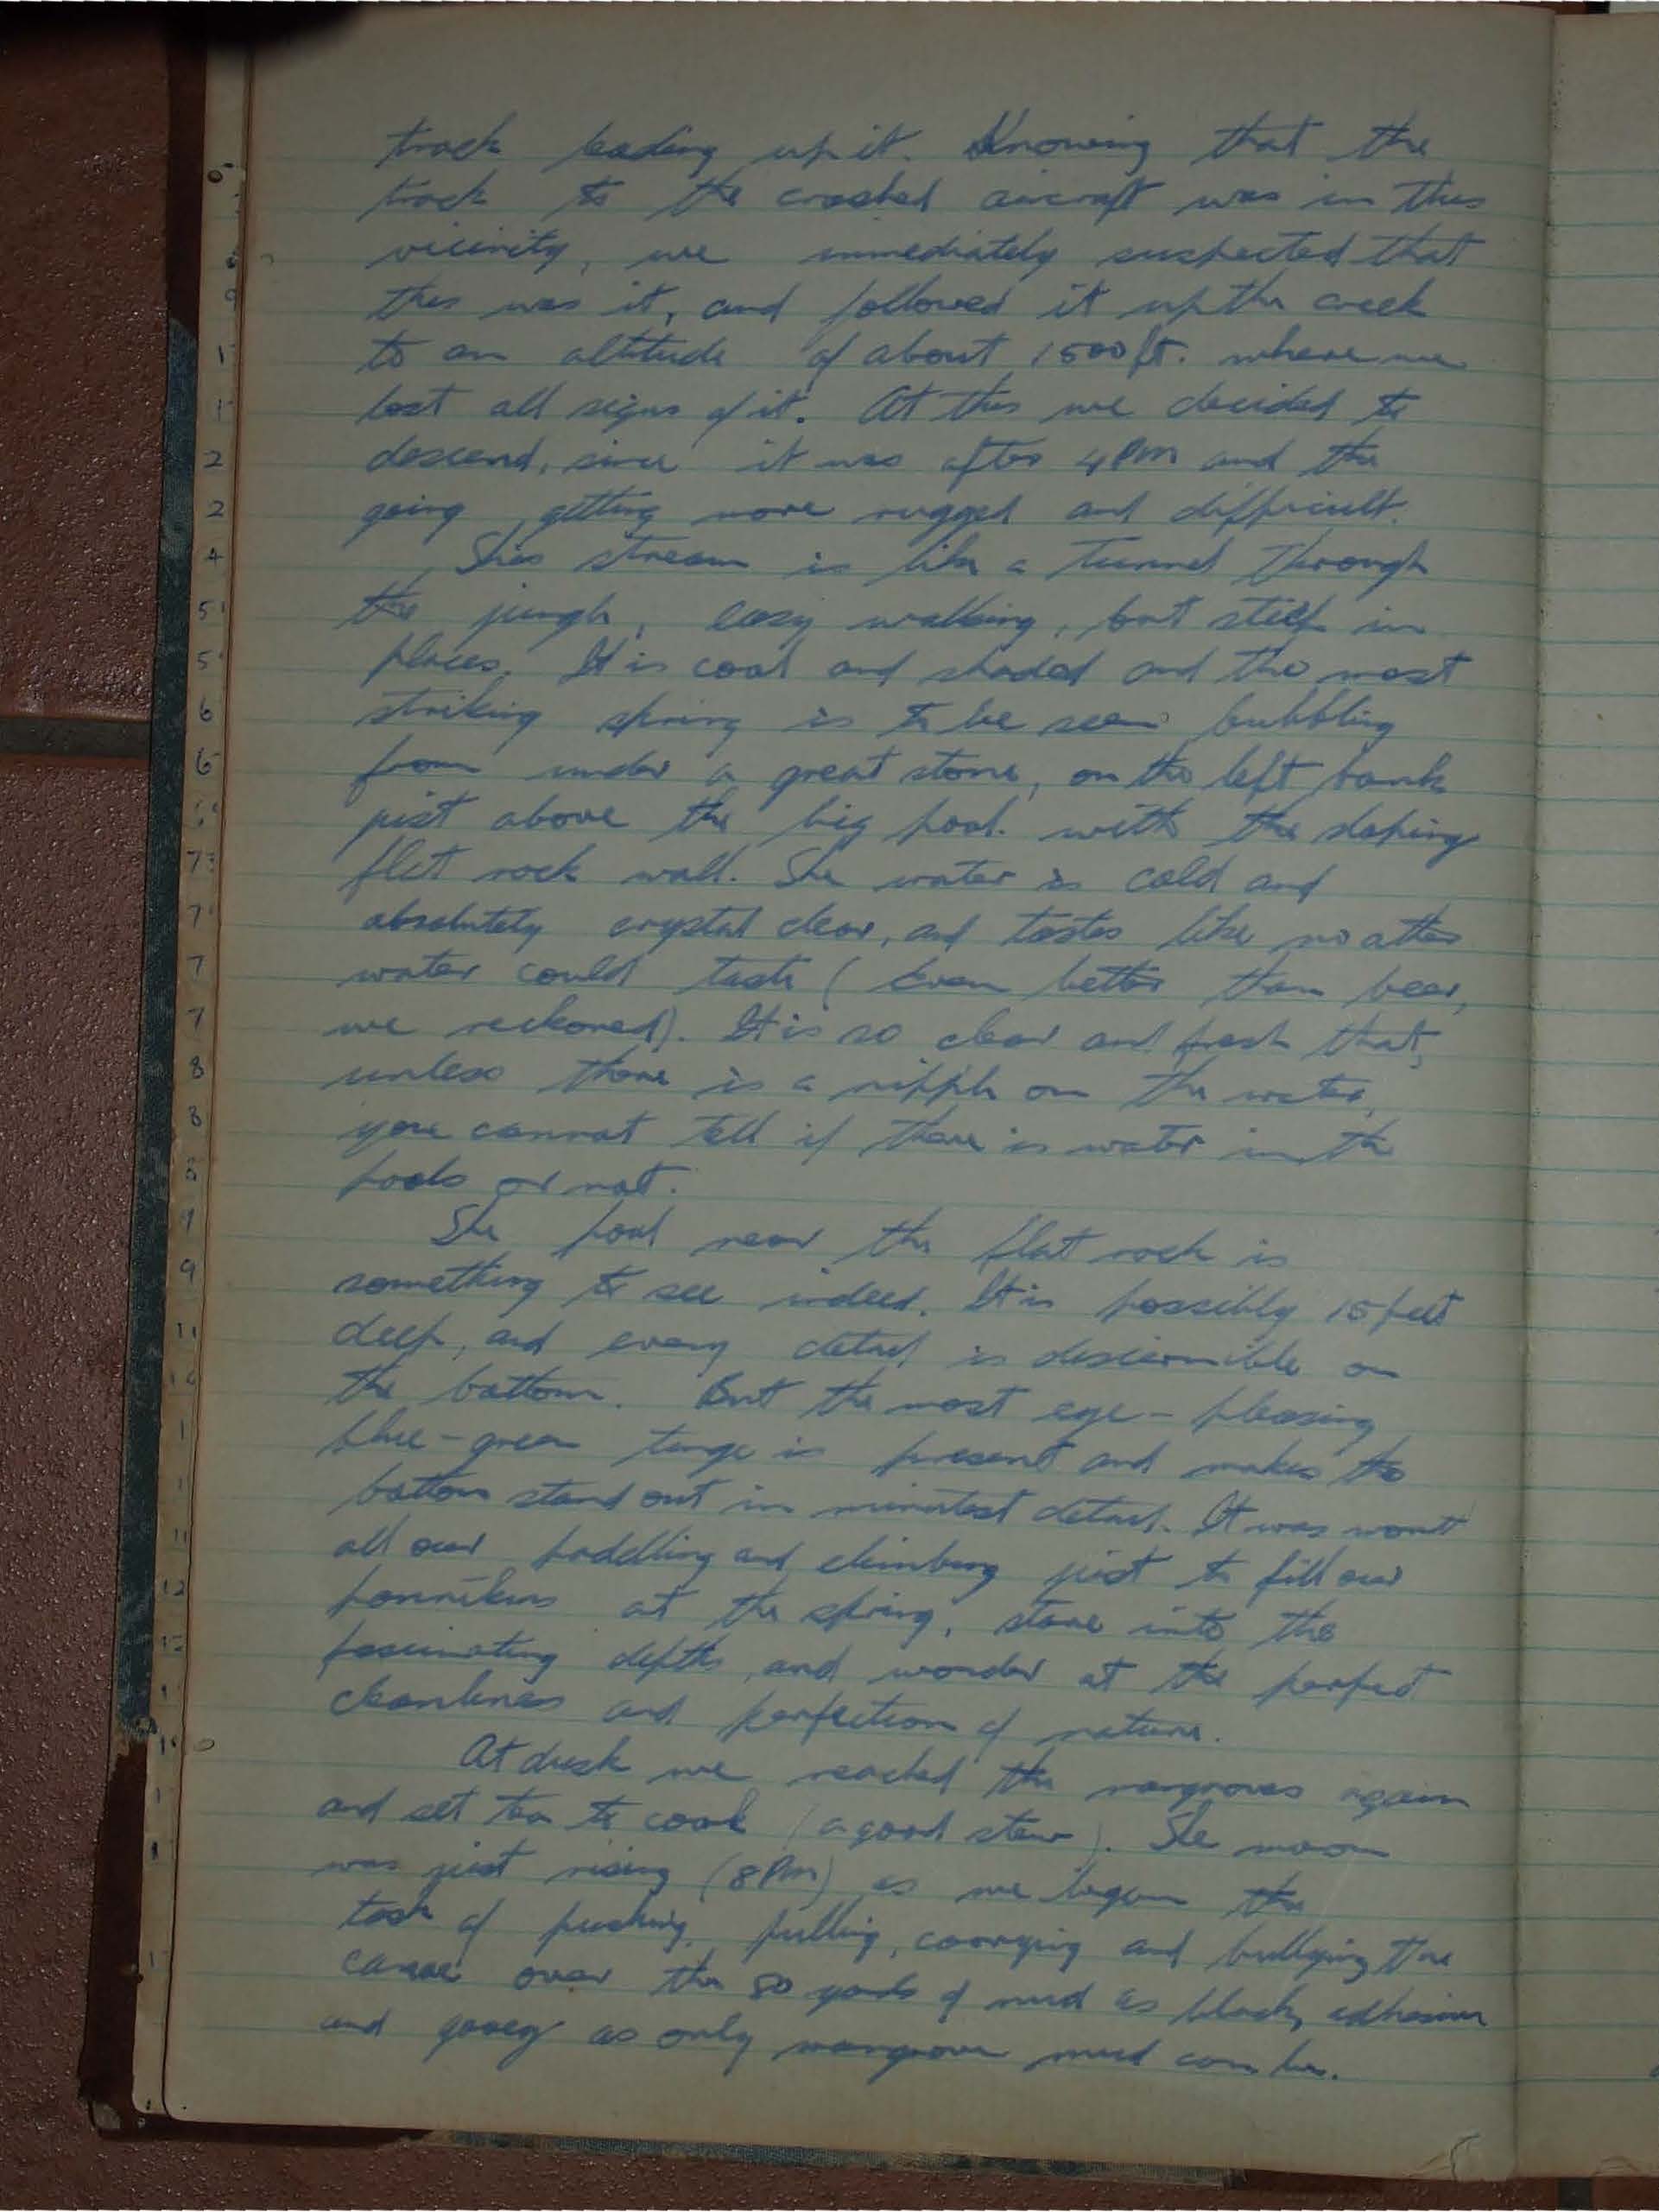 track leading up it. Knowing that the
track to the crashed aircraft was in this
vicinity, we immediately suspected that
this was it, and followed it up the creek
to an altitude of about 1500 ft. where we
lost all signs of it. At this we decided to
descend, since it was after 4 PM and the
going getting more rugged and difficult.
This stream is like a tunnel through
the jungle, easy walking, but steep in
places. It is cool and shaded and the most
striking spring is to be seen bubbling
from under a great stone, on the left bank
just above the big pool. with the sloping
flat rock wall. The water is cold and
absolutely crystal clear, and tastes like no other
water could taste (even better than beer,
we reckoned). It is so clear and fresh that,
unless there is a ripple on the water,
you cannot tell if there is water in the
pools or not.
The pool near the flat rock is
something to see indeed. It is possibly 15 feet
deep, and every detail is discernible on
the bottom. But the most eye-pleasing
blue-green tinge is present and makes the
bottom stand out in minutest detail. It was worth
all our paddling and climbing just to fill our
pannikins at the spring, stare into the
fascinating depths, and wonder at the perfect
cleanliness and perfection of nature.
At dusk we reached the mangroves again
and set tea to cook (a good stew). The moon
was just rising (8 PM) as we began the
task of pushing, pulling, carrying and bullying the
canoe over the 80 yards of mud as black, adhesive
and gooey as only mangrove mud can be.